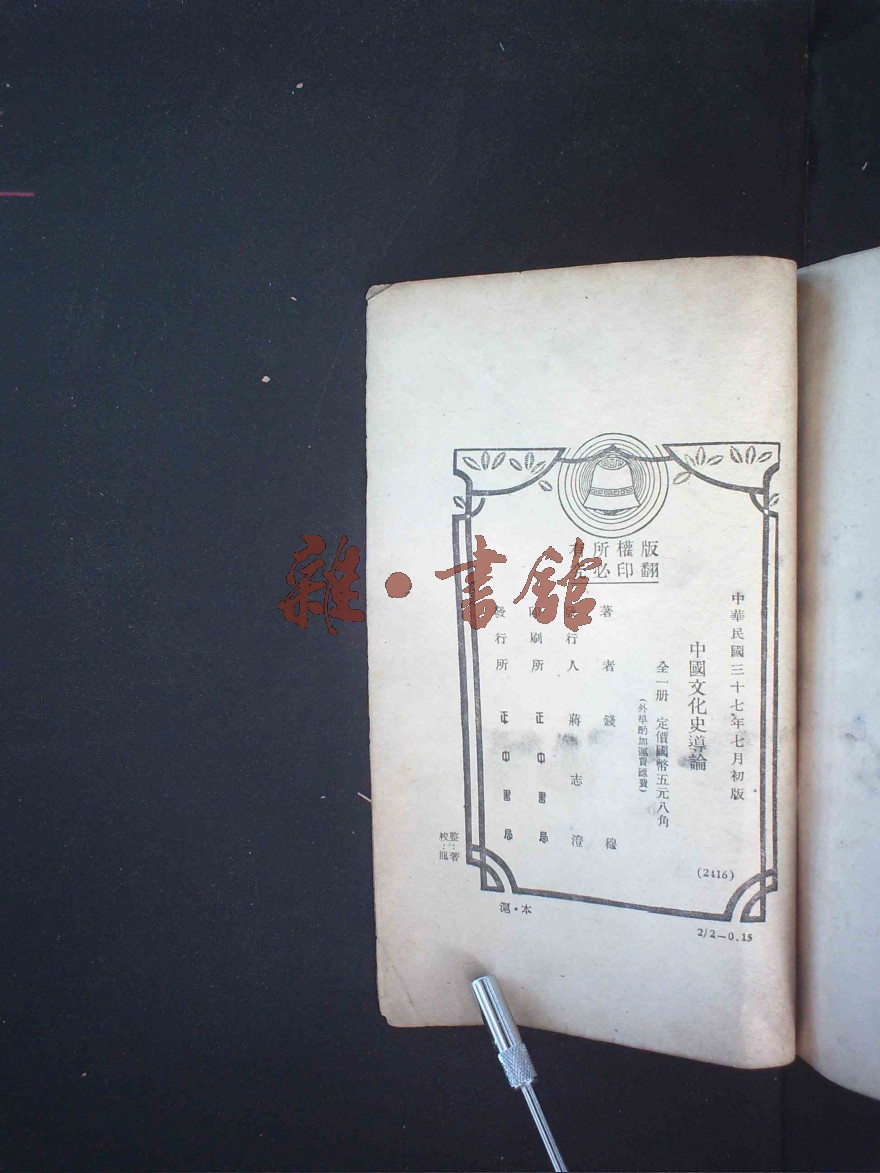 版權所有
翻印必
中華民國三十七年七月初版
中國文化史導論
全一册 定價國幣五元八角
(外埠酌加運費匯費)
著者 錢穆
行人 蔣志澄
印刷所 正中書局
發行所 正中書局
(2416)
整:著
校:龍
滬·本
2/2—0.15
雜·書館